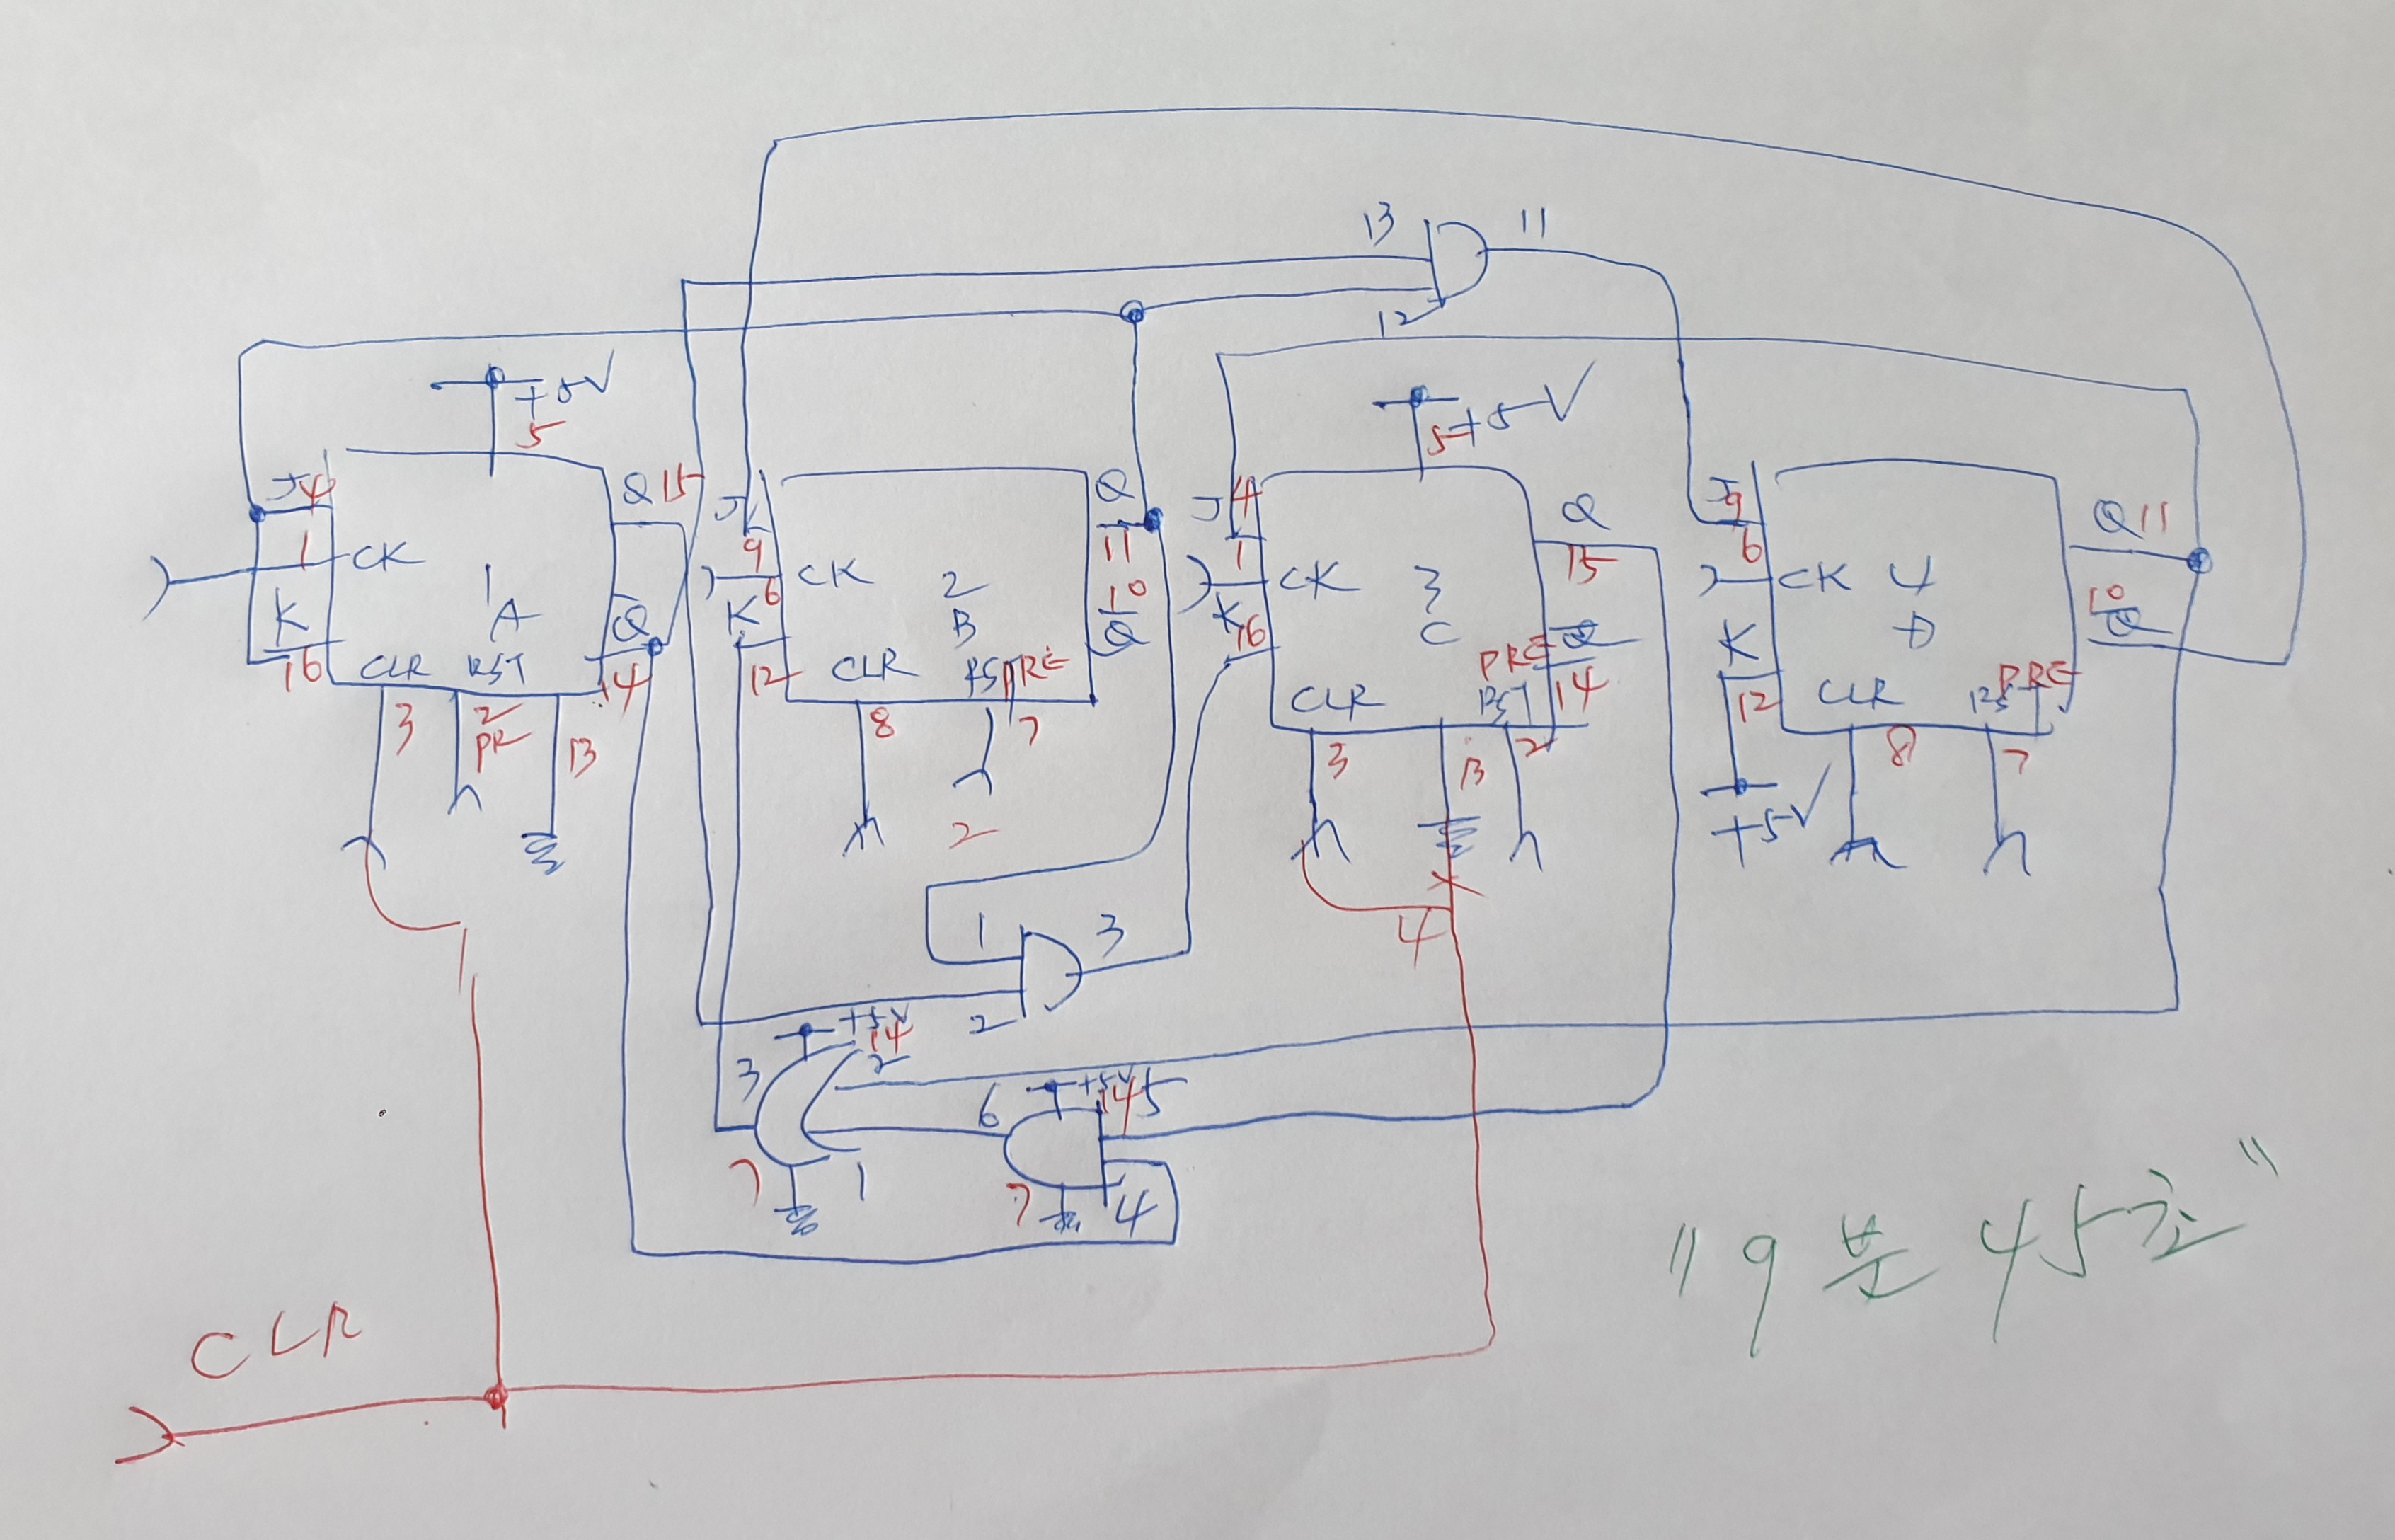 13 11
12
+5V
5
5 +5V
J 4 Q 15 J Q J 4 Q J 9 Q 11
1 CK 9 CK 2 11 1 CK 3 15 6 CK 4 10
K 1 A Q̄ 6 K B 10 Q̄ K C Q̄ K D Q̄
16 CLR RST 14 12 CLR RST PRE 16 CLR PRE RST 14 12 CLR RST PRE
3 2 PR 13 8 7 3 13 2 +5V 8 7
2
1 3 4
2
+5V
14
3 2 6 +5V 14 5
7 1 7 4
"9분 45초"
CLR